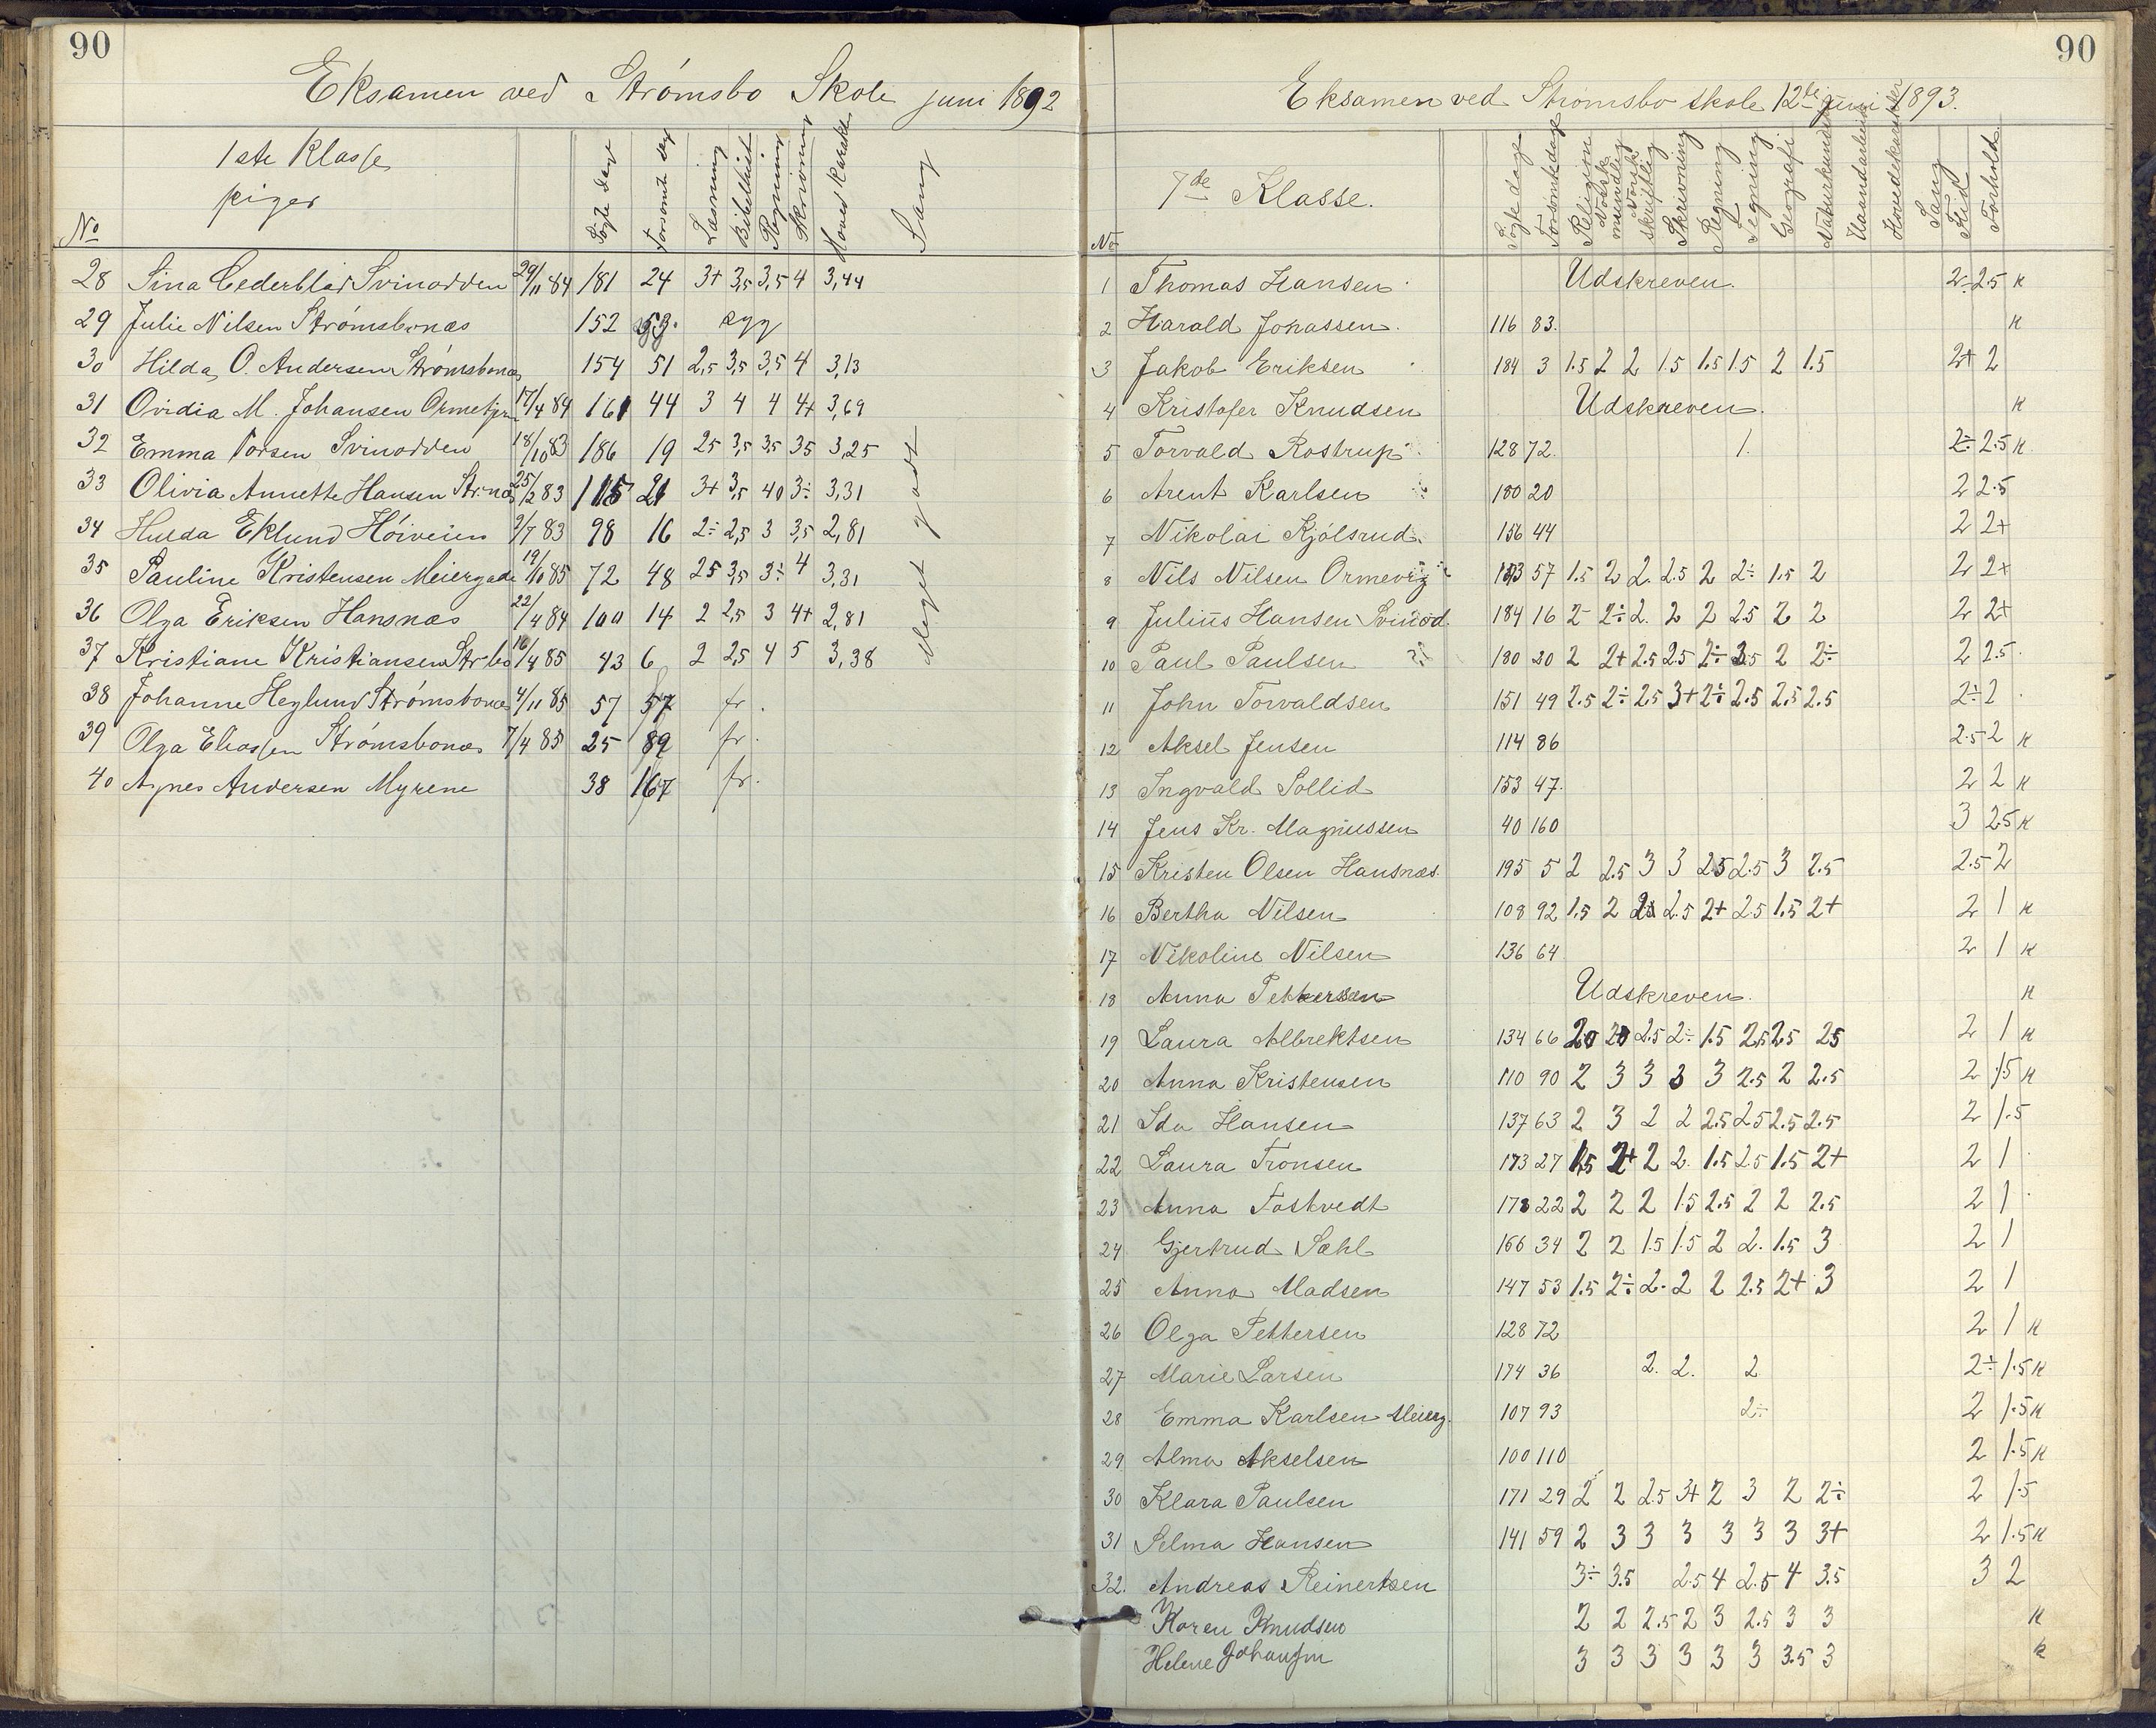 90
Eksamen ved Strømsbo Skole juni 1892
1ste Klasse
piger
No
Søgte Dage
Forsømt Dage
Læsning
Bibelhist
Regning
Skrivning
Hoved Karakter
Sang
28 Sina Cederblad Svinodden 29/11 84 181 24 3+ 3,5 3,5 4 3,44
29 Julie Nilsen Strømsbonæs 152 53. syg
30 Hilda O. Andersen Strømsbonæs 154 51 2,5 3,5 3,5 4 3,13
31 Ovidia M. Johansen Ormetjern 17/4 84 161 44 3 4 4 4+ 3,69
32 Emma Torsen Svinodden 18/10 83 186 19 25 3,5 3,5 35 3,25
33 Olivia Annette Hansen Str.næs 25/2 83 115 21 3+ 3,5 40 3÷ 3,31
34 Hulda Eklund Høiveien 9/7 83 98 16 2÷ 2,5 3 3,5 2,81
35 Pauline Kristensen Meiergade 19/10 85 72 48 25 3,5 3÷ 4 3,31
36 Olga Eriksen Hansnæs 22/4 84 100 14 2 2,5 3 4+ 2,81
37 Kristiane Kristiansen Str.bo 16/4 85 43 6 2 2,5 4 5 3,38
38 Johanne Heglund Strømsbonæs 4/11 85 57 57 fr.
39 Olga Eliassen Strømsbonæs 7/4 85 25 89 fr.
40 Agnes Andersen Myrene 38 167 fr.
Meget godt
90
Eksamen ved Strømsbo skole 12te juni 1893.
7de Klasse.
No
Søgte dage
Forsømte dage
Religion
Norsk mundtlig
Norsk skriftlig
Skrivning
Regning
Tegning
Geografi
Naturkundskab
Haandarbeide
Hovedkarakter
Sang
Flid
Forhold
1 Thomas Hansen Udskreven. 2÷ 2.5 K
2 Harald Jonassen. 116 83. K
3 Jakob Eriksen 184 3 1.5 2 2 1.5 1.5 1.5 2 1.5 2+ 2
4 Kristofer Knudsen Udskreven. K
5 Torvald Rostrup 128 72. 1. 2÷ 2.5 K
6 Arent Karlsen 180 20 2 2.5
7 Nikolai Kjølsrud. 156 44 2 2+
8 Nils Nilsen Ormevig 143 57 1.5 2 2. 2.5 2 2÷ 1.5 2 2 2+
9 Julius Hansen Svinod. 184 16 2 2÷ 2. 2 2 2.5 2 2 2 2+
10 Paul Paulsen 180 20 2 2+ 2.5 2.5 2÷ 2.5 2 2÷ 2 2.5.
11 John Torvaldsen 151 49 2.5 2÷ 2.5 3+ 2÷ 2.5 2.5 2.5 2÷ 2
12 Aksel Jensen 114 86 2.5 2 K
13 Ingvald Sollid 153 47. 2 2 K
14 Jens Kr. Magnussen 40 160 3 2.5 K
15 Kristen Olsen Hansnæs. 195 5 2 2.5 3 3 2.5 2.5 3 2.5 2.5 2
16 Bertha Nilsen 108 92 1.5 2 2.5 2.5 2+ 2.5 1.5 2+ 2 1 K
17 Nikoline Nilsen 136 64 2 1 K
18 Anna Pettersen Udskreven. K
19 Laura Albrektsen 134 66 2.0 2.0 2.5 2÷ 1.5 2.5 2.5 2.5 2 1 K
20 Anna Kristensen 110 90 2 3 3 3 3 2.5 2 2.5 2 1.5 K
21 Ida Hansen 137 63 2 3 2 2 2.5 2.5 2.5 2.5 2 1.5
22 Laura Tronsen 173 27 1.5 2+ 2 2. 1.5 2.5 1.5 2+ 2 1
23 Anna Tostvedt 178 22 2 2 2 1.5 2.5 2 2 2.5 2 1
24 Gjertrud Sæhl 166 34 2 2 1.5 1.5 2 2. 1.5 3 2 1
25 Anna Madsen 147 53 1.5 2÷ 2. 2 2 2.5 2+ 3 2 1
26 Olga Pettersen 128 72 2 1 K
27 Marie Larsen 174 36 2. 2. 2 2÷ 1.5 K
28 Emma Karlsen Meierg. 107 93 2÷ 2 1.5 K
29 Alma Akselsen 100 110 2 1.5 K
30 Klara Paulsen 171 29 2 2 2.5 3+ 2 3 2 2÷ 2 1.5
31 Selma Hansen 141 59 2 3 3 3 3 3 3 3+ 2 1.5 K
32. Andreas Reinertsen 3÷ 3.5 2.5 4 2.5 4 3.5 3 2
Karen Knudsen 2 2 2.5 2 3 2.5 3 3 K
Helene Johansen 3 3 3 3 3 3 3.5 3 K